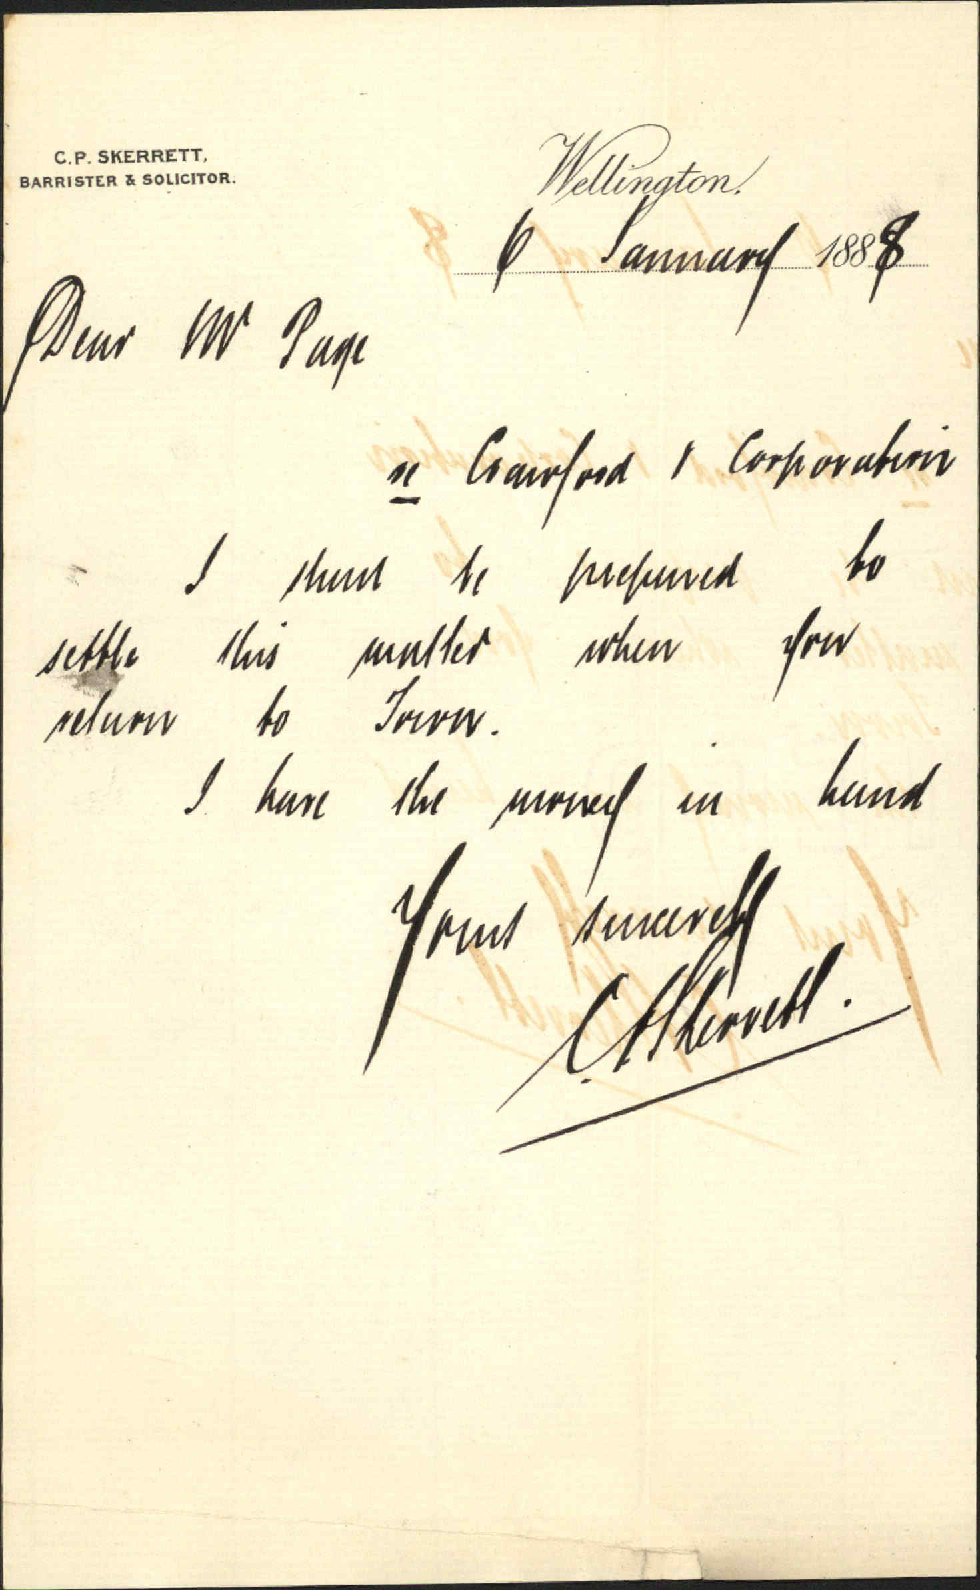 C.P. SKERRETT,
BARRISTER & SOLICITOR.
Wellington.
6 January 1888
Dear Mr Page
re Crawford v Corporation
I shall be prepared to
settle this matter when you
return to Town.
I have the money in hand
Yours sincerely
C P Skerrett.